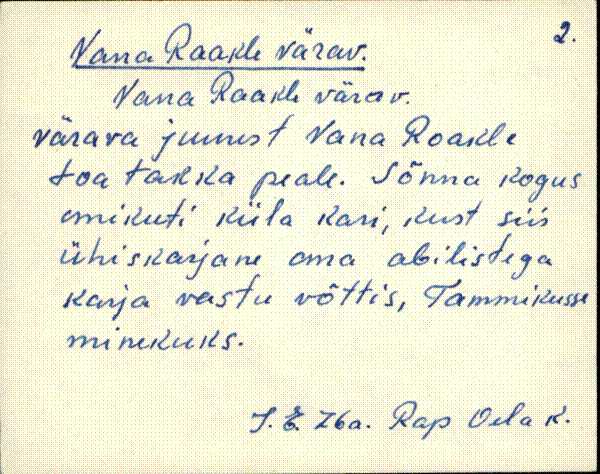 2.
Vana Raakle värav.
Vana Raakle värav.
värava juurest Vana Roakle
toa takka peale. Sõnna kogus
omikuti küla kari, kust siis
ühiskarjane oma abilistega
karja vastu võttis, Tammikusse
minekuks.
J. E. 76a. Rap Oela k.